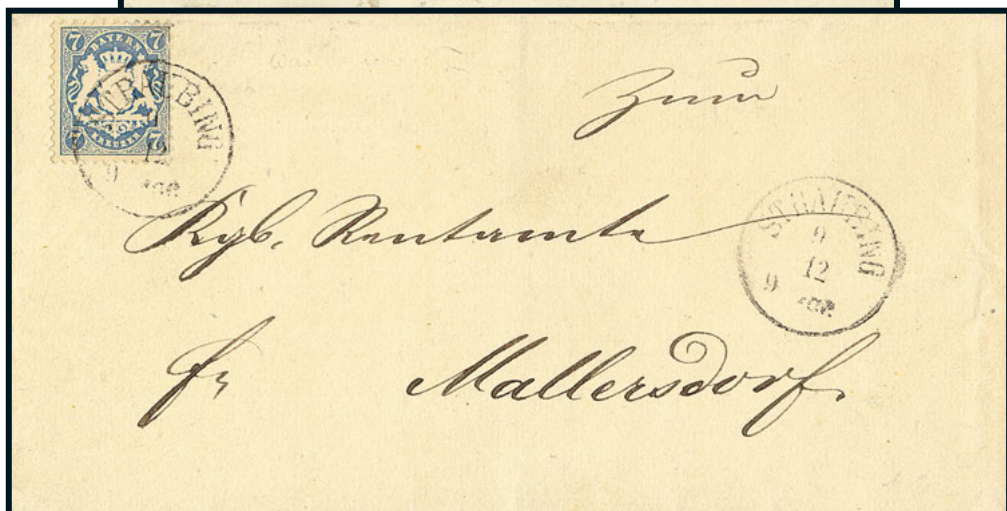 7 BAYERN 7
7 KREUZER 7
STRAUBING
12
9
Zum
Kgb. Rentamte
STRAUBING
9
12
9
fr Mallersdorf.